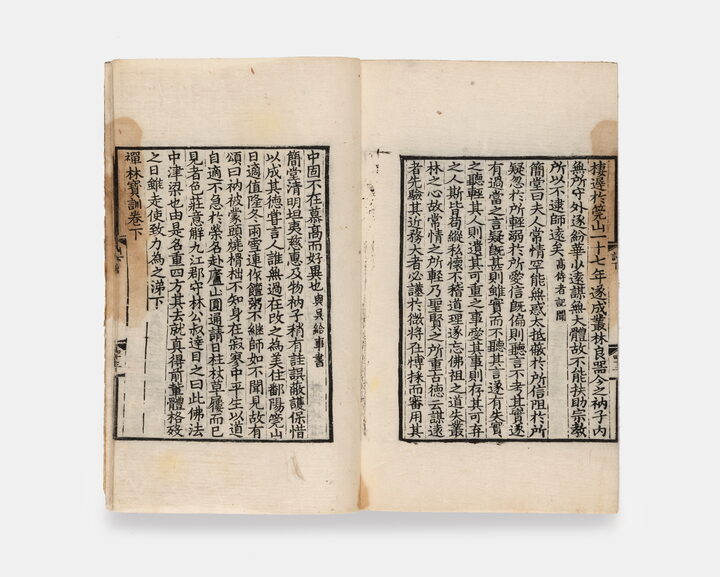 棲遲於筦山一十七年遂成叢林良器今之衲子內
無所守外逐紛華少遠謀無大體故不能扶助宗教
所以不逮師遠矣 高侍者記聞
簡堂曰夫人常情罕能無惑大抵蔽於所信阻於所
疑忽於所輕弱於所愛信既偏則聽言不考其實遂
有過當之言疑既甚則雖實而不聽其言遂有失實
之聽輕其人則遺其可重之事愛其事則存其可弃
之人斯皆苟縱私懷不稽道理遂忘佛祖之道失叢
林之心故常情之所輕乃聖賢之所重古德云謀遠
者先驗其近務大者必謹於微將在博採而審用其
中固不在慕高而好異也 與吳給事書
簡堂清明坦夷慈惠及物衲子稍有詿誤蔽護保惜
以成其德嘗言人誰無過在改之為美住鄱陽筦山
日適值隆冬雨雪連作饘粥不継師如不聞見故有
頌曰衲被蒙頭燒榾柮不知身在寂寥中平生以道
自適不急於榮名赴廬山圓通請日柱杖草屨而已
見者色莊意解九江郡守林公叔達目之曰此佛法
中津梁也由是名重四方其去就真得前輩體格歿
之日雖走使致力為之涕下
禪林寶訓卷下